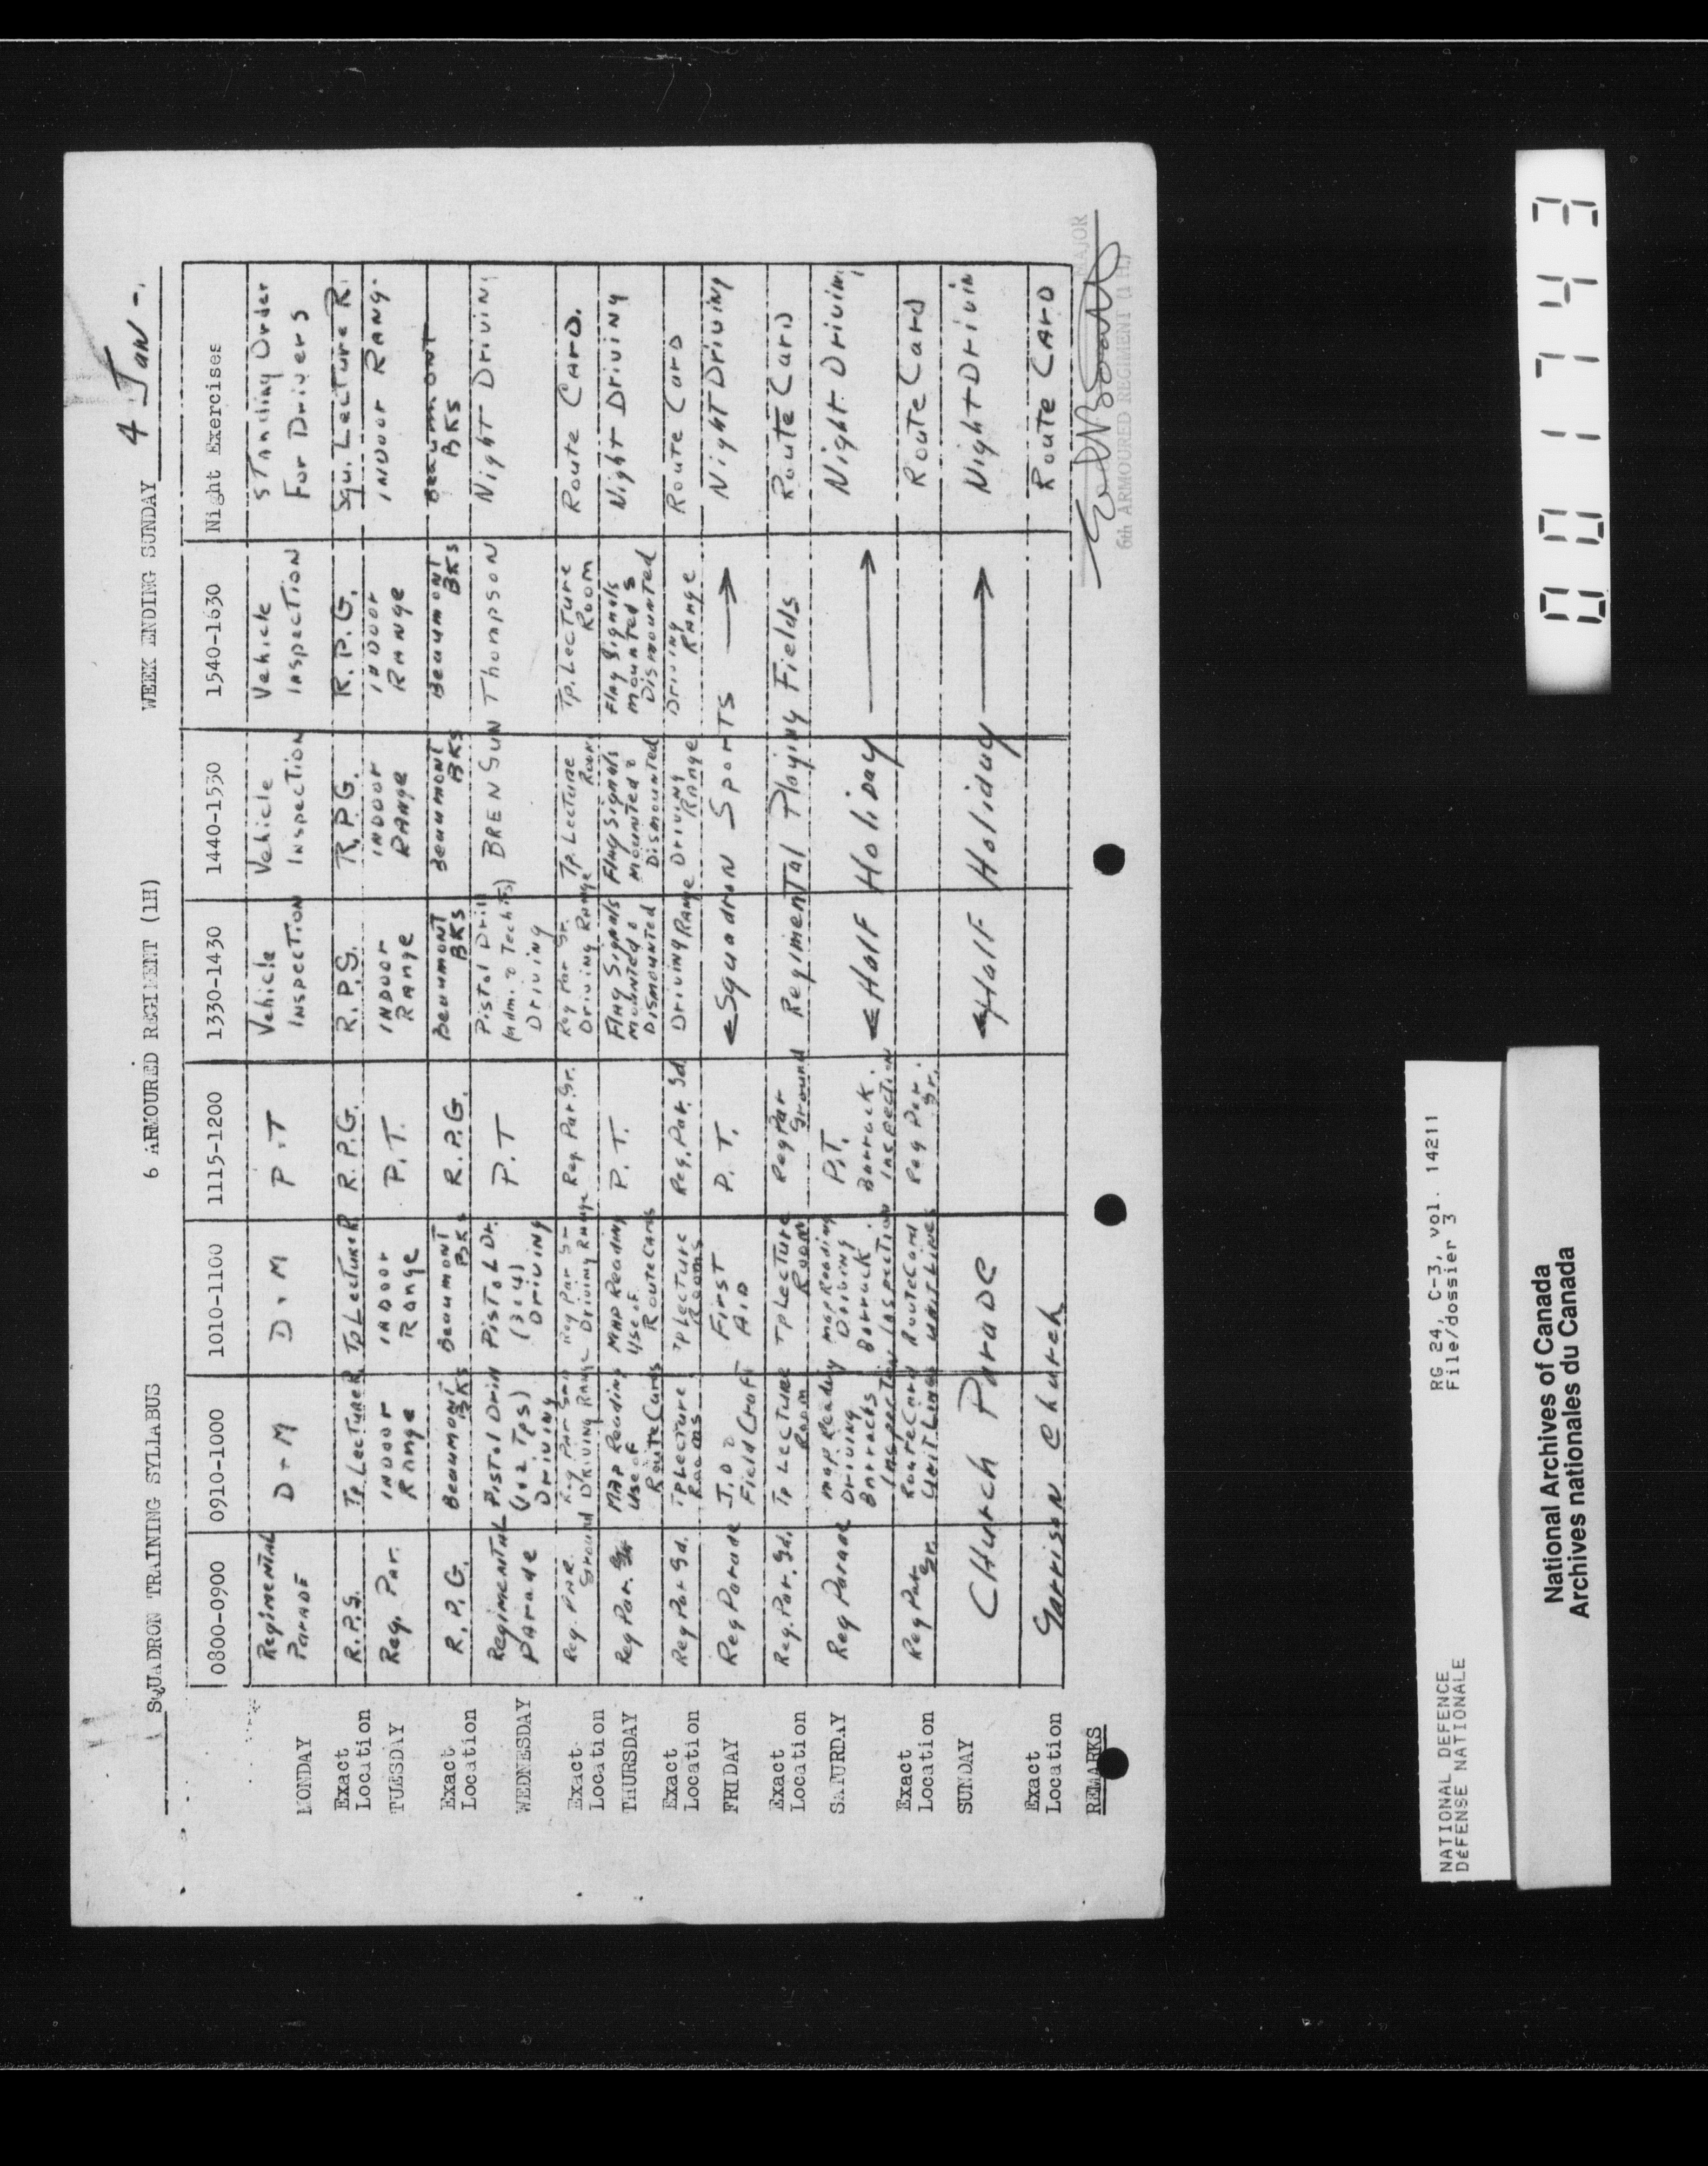 SQUADRON TRAINING SYLLABUS 6 ARMOURED REGIMENT (1H) WEEK ENDING SUNDAY 4 Jan -
0800-0900 0910-1000 1010-1100 1115-1200 1330-1430 1440-1530 1540-1630 Night Exercises
MONDAY
Regimental Parade
D+M
D.M
P.T
Vehicle Inspection
Vehicle Inspection
Vehicle Inspection
Standing Order For Drivers
Exact Location
R.P.G.
Tp Lecture R.
Tp Lecture R
R.P.G.
R.P.G.
R.P.G.
R.P.G.
Squ. Lecture R.
TUESDAY
Reg. Par.
Indoor Range
Indoor Range
P.T.
Indoor Range
Indoor Range
Indoor Range
Indoor Rang-
Exact Location
R.P.G.
Beaumont BKs
Beaumont BKs
R.P.G.
Beaumont BKs
Beaumont BKs
Beaumont BKs
Beaumont BKs
WEDNESDAY
Regimental Parade
Pistol Drill (1&2 Tps) Driving
Pistol Dr. (3&4) Driving
P.T
Pistol Drill (Adm. & Tech Ts) Driving
BREN GUN Thompson
Night Driving
Exact Location
Reg. Par. Ground
Reg. Par Grn Driving Range
Reg Par Gr- Driving Range
Reg. Par. Gr.
Reg Par Gr. Driving Range
Tp Lecture Room
Tp. Lecture Room
Route Card.
THURSDAY
Reg Par.
Map Reading Use of Route Cards
Map Reading Use of Route Cards
P.T.
Flag Signals Mounted & Dismounted
Flag Signals Mounted & Dismounted
Flag Signals Mounted & Dismounted
Night Driving
Exact Location
Reg Par Gd.
Tp Lecture Rooms
Tp Lecture Rooms
Reg. Par. Gd.
Driving Range
Driving Range
Driving Range
Route Card
FRIDAY
Reg Parade
J.D & Field Craft
First Aid
P.T.
← Squadron Sports →
Night Driving
Exact Location
Reg. Par. Gd.
Tp Lecture Room
Tp Lecture Room
Reg Par Ground
Regimental Playing Fields
Route Card
SATURDAY
Reg Parade
Map Reading Driving Barracks Inspection
Map Reading Driving Barrack Inspection
P.T. Barrack Inspection
← Half Holiday →
Night Driving
Exact Location
Reg Par Gr.
Route Card Unit Lines
Route Card Unit Lines
Reg Par. Gr.
Route Card
SUNDAY
Church Parade
← Half Holiday →
Night Drivin
Exact Location
Garrison Church
Route Card
REMARKS
MAJOR
6th ARMOURED REGIMENT (1 H.)
NATIONAL DEFENCE RG 24, C-3, vol. 14211
DÉFENSE NATIONALE File/dossier 3
National Archives of Canada
Archives nationales du Canada
0001743